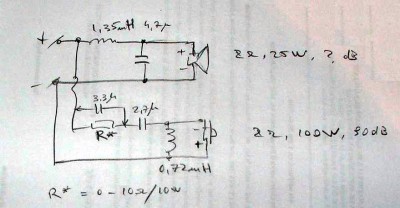 1,35mH 4,7µ
+
+
8Ω, 25W, ? dB
-
-
3.3µ
2,7µ
R*
-
8Ω, 100W, 90dB
+
0,72mH
R* = 0-10Ω/10W